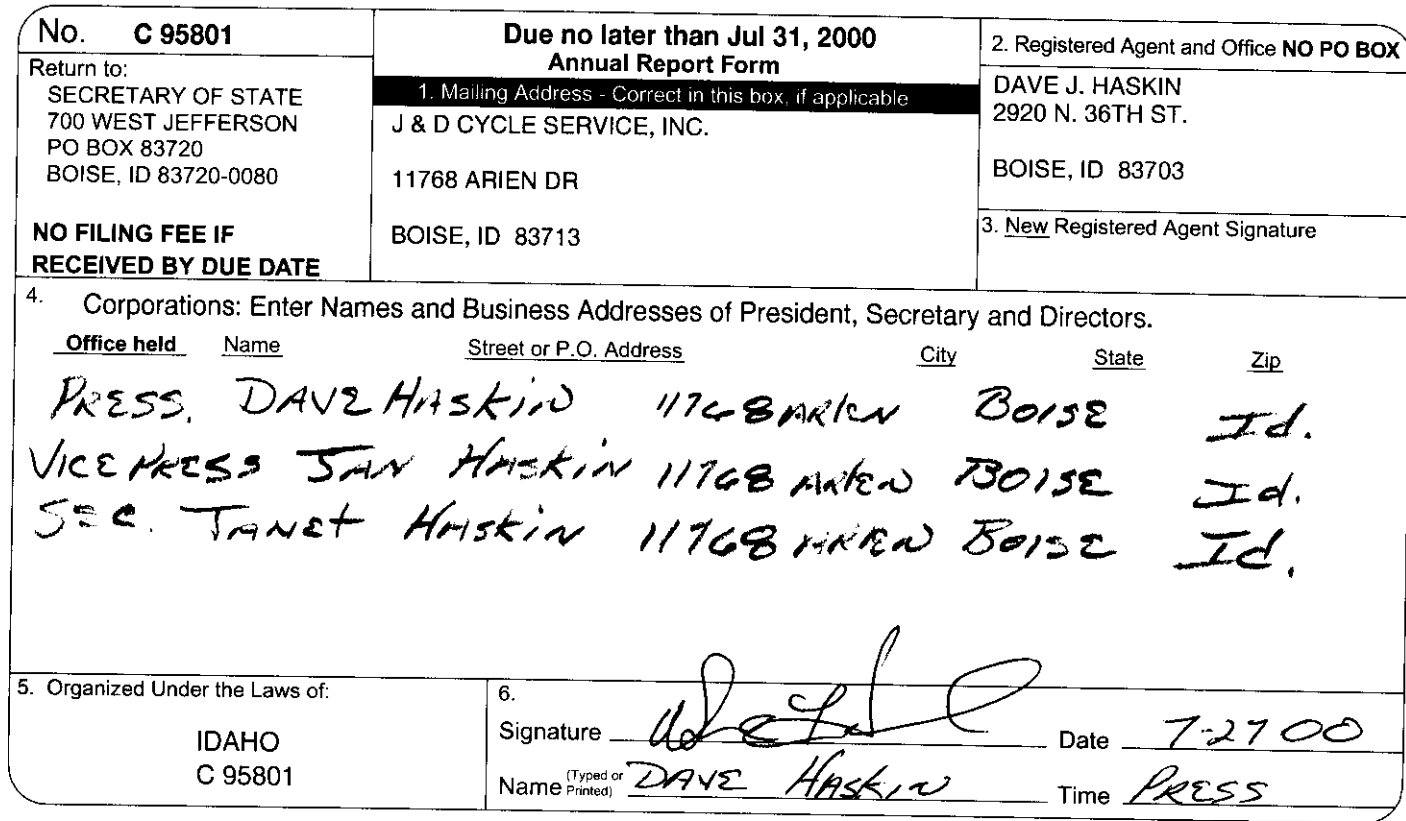 No. C 95801
Return to:
SECRETARY OF STATE
700 WEST JEFFERSON
PO BOX 83720
BOISE, ID 83720-0080
NO FILING FEE IF
RECEIVED BY DUE DATE
Due no later than Jul 31, 2000
Annual Report Form
1. Mailing Address - Correct in this box, if applicable
J & D CYCLE SERVICE, INC.
11768 ARIEN DR
BOISE, ID 83713
2. Registered Agent and Office NO PO BOX
DAVE J. HASKIN
2920 N. 36TH ST.
BOISE, ID 83703
3. New Registered Agent Signature
4. Corporations: Enter Names and Business Addresses of President, Secretary and Directors.
Office held Name Street or P.O. Address City State Zip
PRESS. DAVE HASKIN 11768 ARIEN BOISE Id.
VICE PRESS JAN HASKIN 11768 ARIEN BOISE Id.
SEC. JANET HASKIN 11768 ARIEN BOISE Id.
5. Organized Under the Laws of:
IDAHO
C 95801
6.
Signature Date 7-27 00
Name (Typed or Printed) DAVE HASKIN Time PRESS